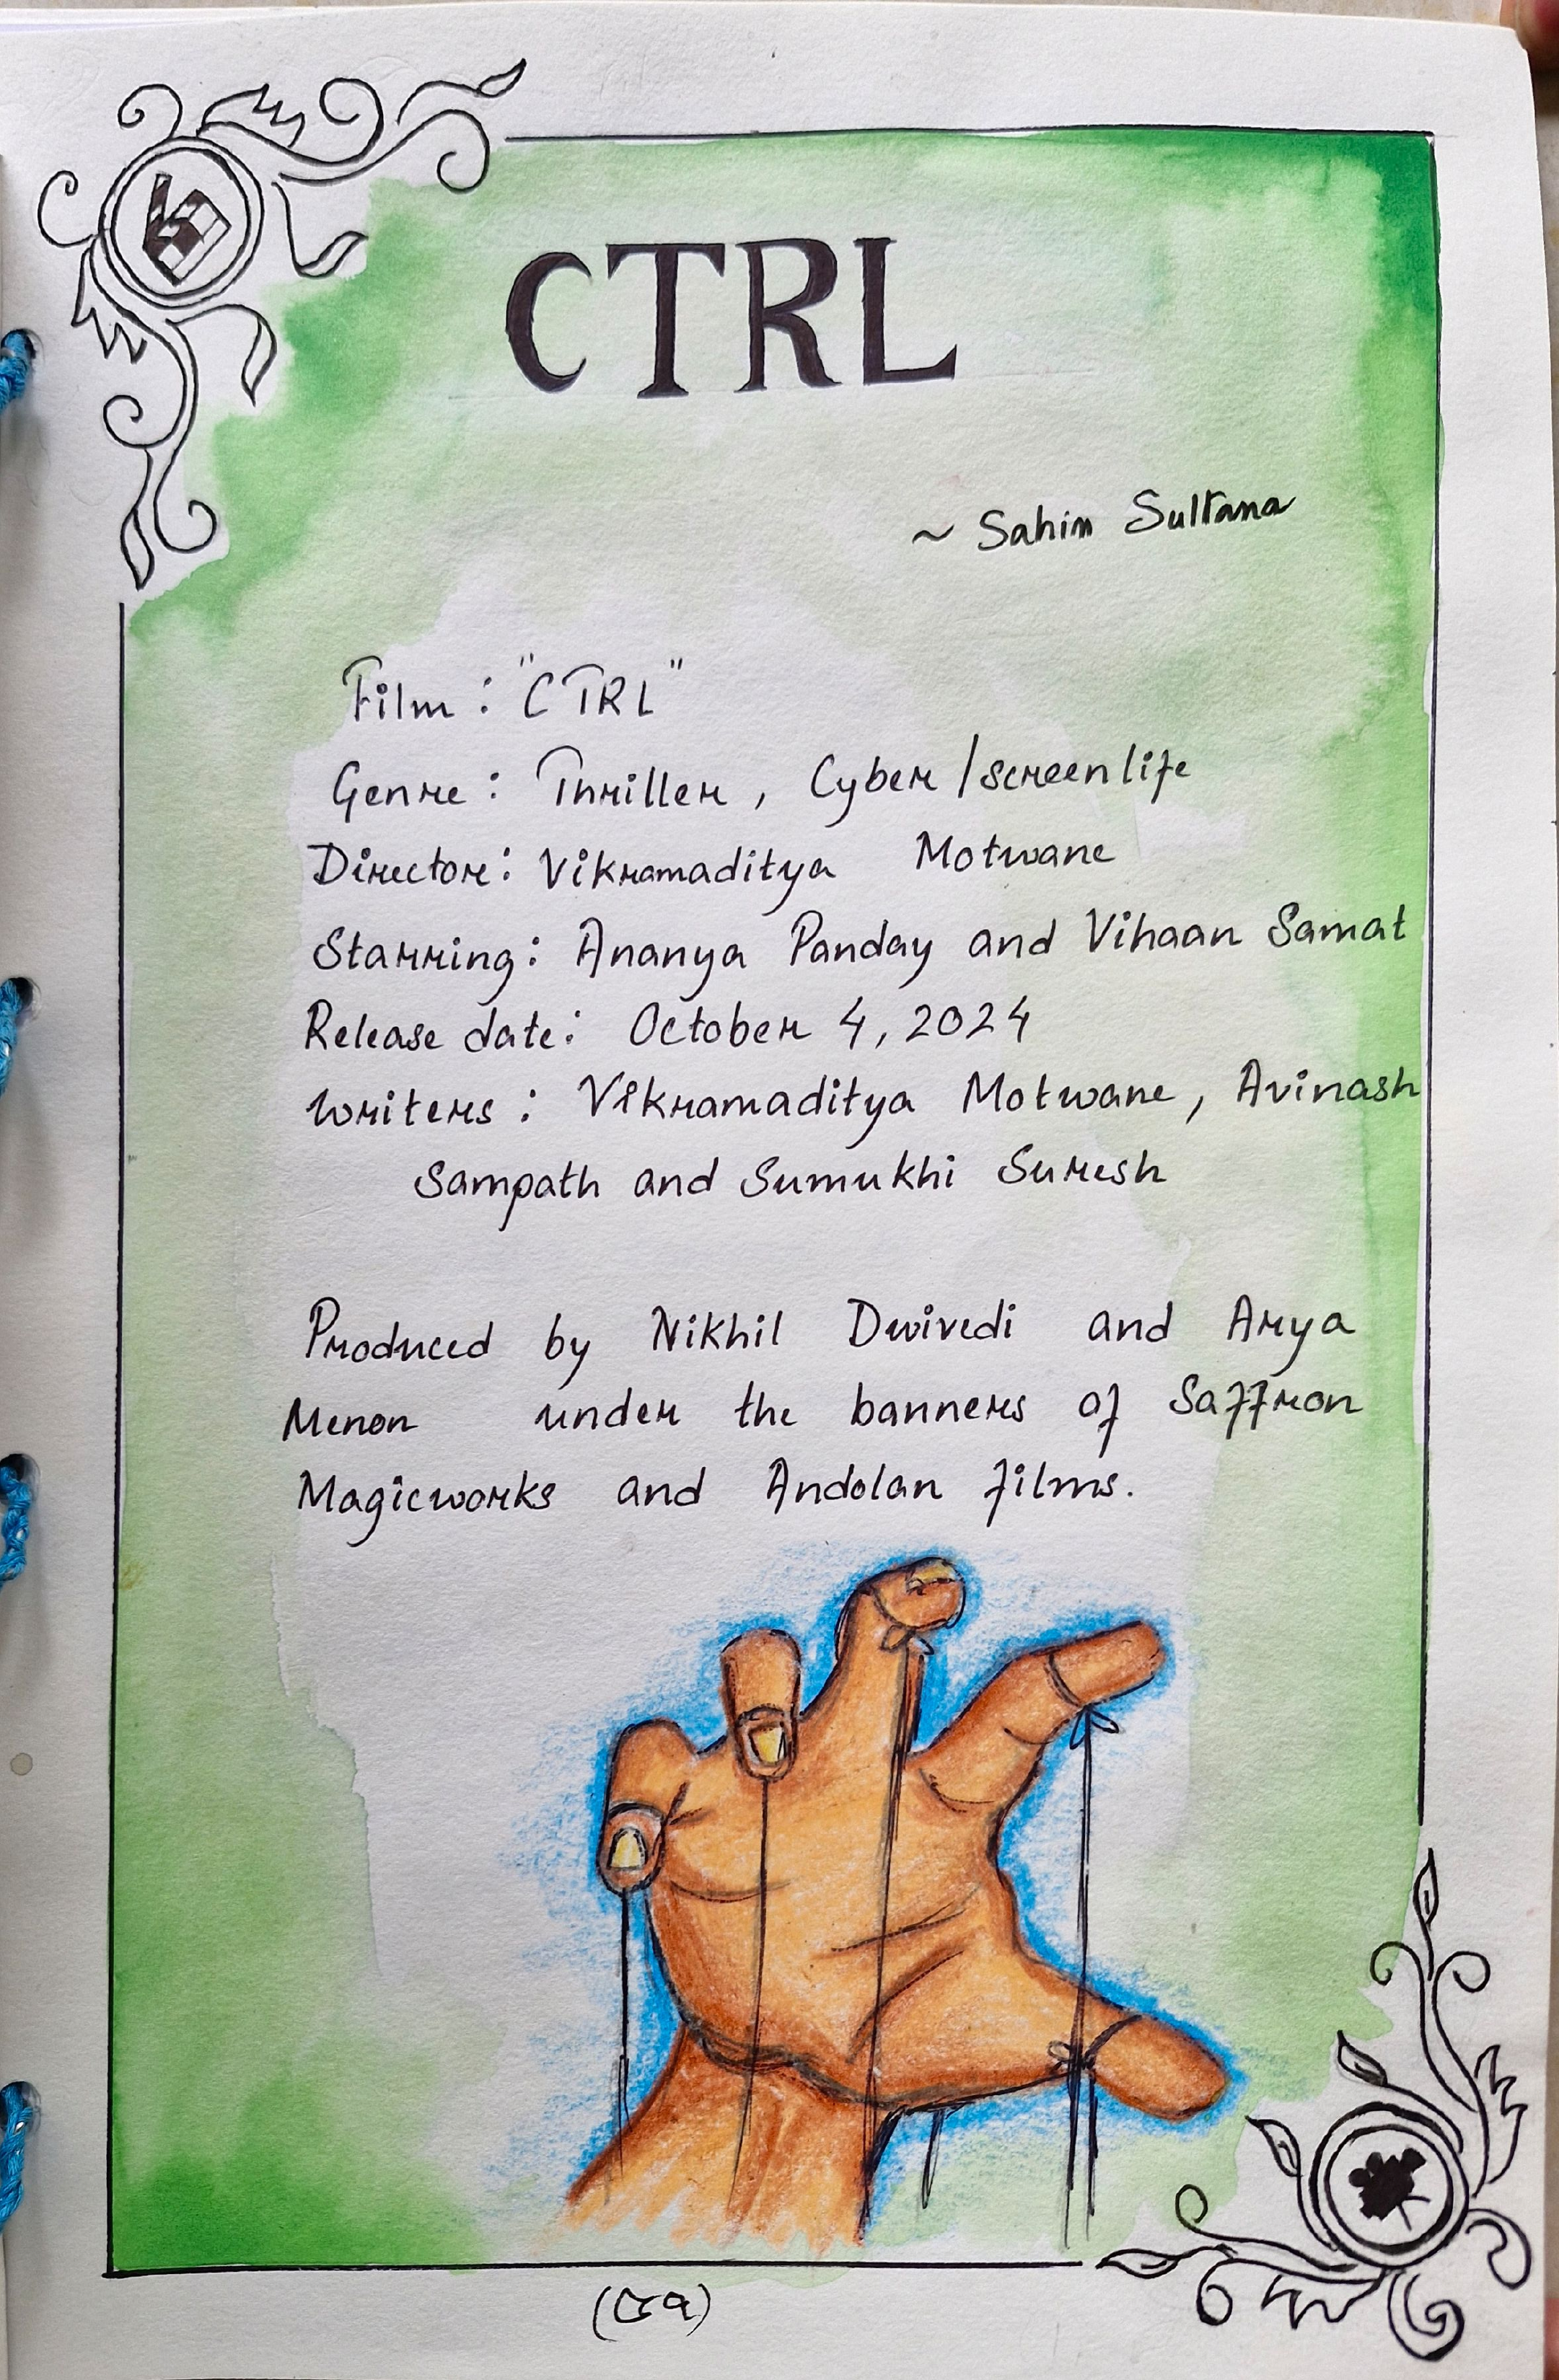 CTRL
~ Sahin Sultana
Film : "CTRL"
Genre : Thriller, Cyber/screenlife
Director : Vikramaditya Motwane
Starring : Ananya Panday and Vihaan Samat
Release date : October 4, 2024
Writers : Vikramaditya Motwane, Avinash
Sampath and Sumukhi Suresh
Produced by Nikhil Dwivedi and Arya
Menon under the banners of Saffron
Magicworks and Andolan films.